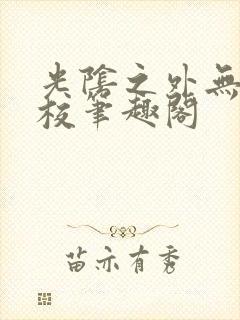 光陰之外無
校筆趣閣
苗亦有秀